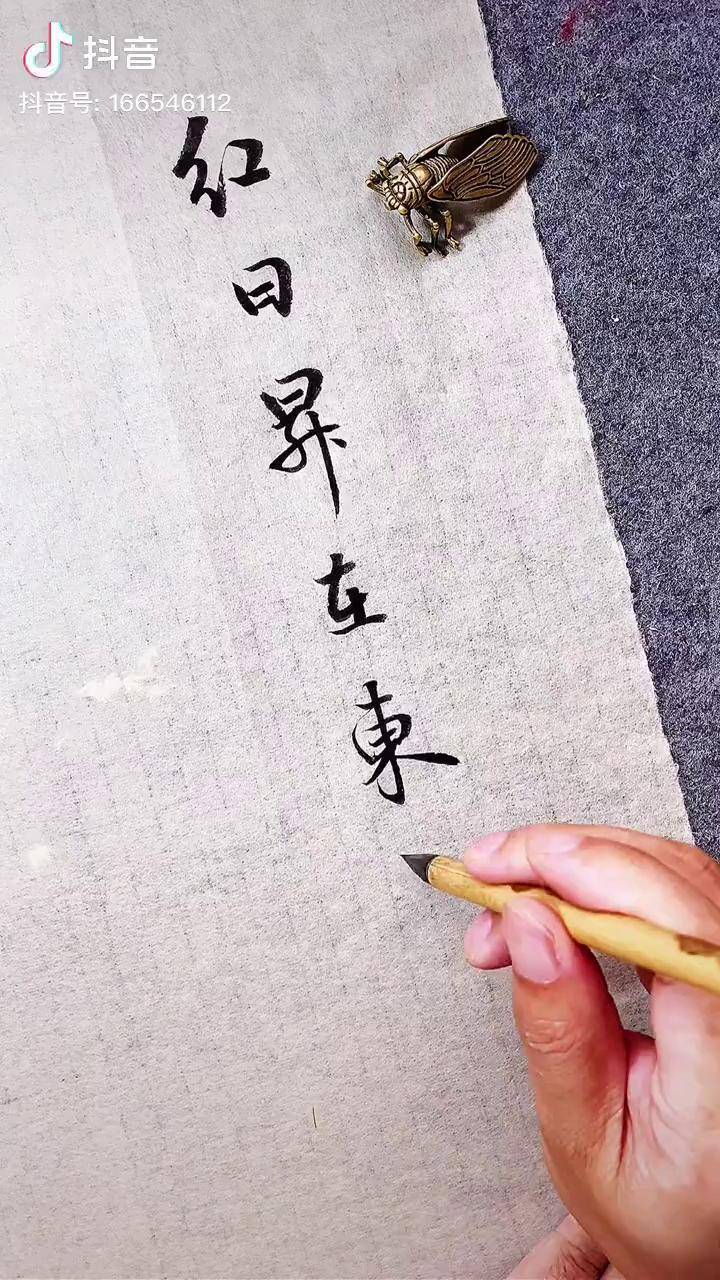 抖音
抖音号: 166546112
红日昇在東